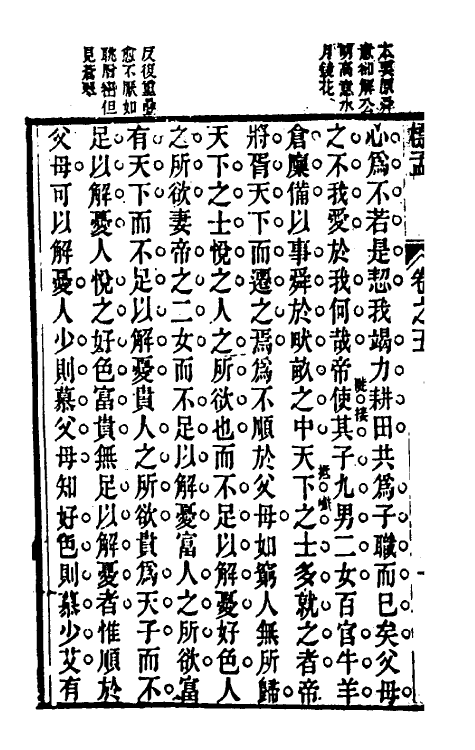 本要原舜
意却解公
明高意水
月鏡花
反復重疊
愈不厭如
眺層巒但
見蒼翠
卷之五
心爲不若是恝我竭力耕田共爲子職而已矣父母
之不我愛於我何哉帝使其子九男二女百官牛羊
倉廩備以事舜於畎畝之中天下之士多就之者帝
將胥天下而遷之焉爲不順於父母如窮人無所歸
天下之士悅之人之所欲也而不足以解憂好色人
之所欲妻帝之二女而不足以解憂富人之所欲富
有天下而不足以解憂貴人之所欲貴爲天子而不
足以解憂人悅之好色富貴無足以解憂者惟順於
父母可以解憂人少則慕父母知好色則慕少艾有